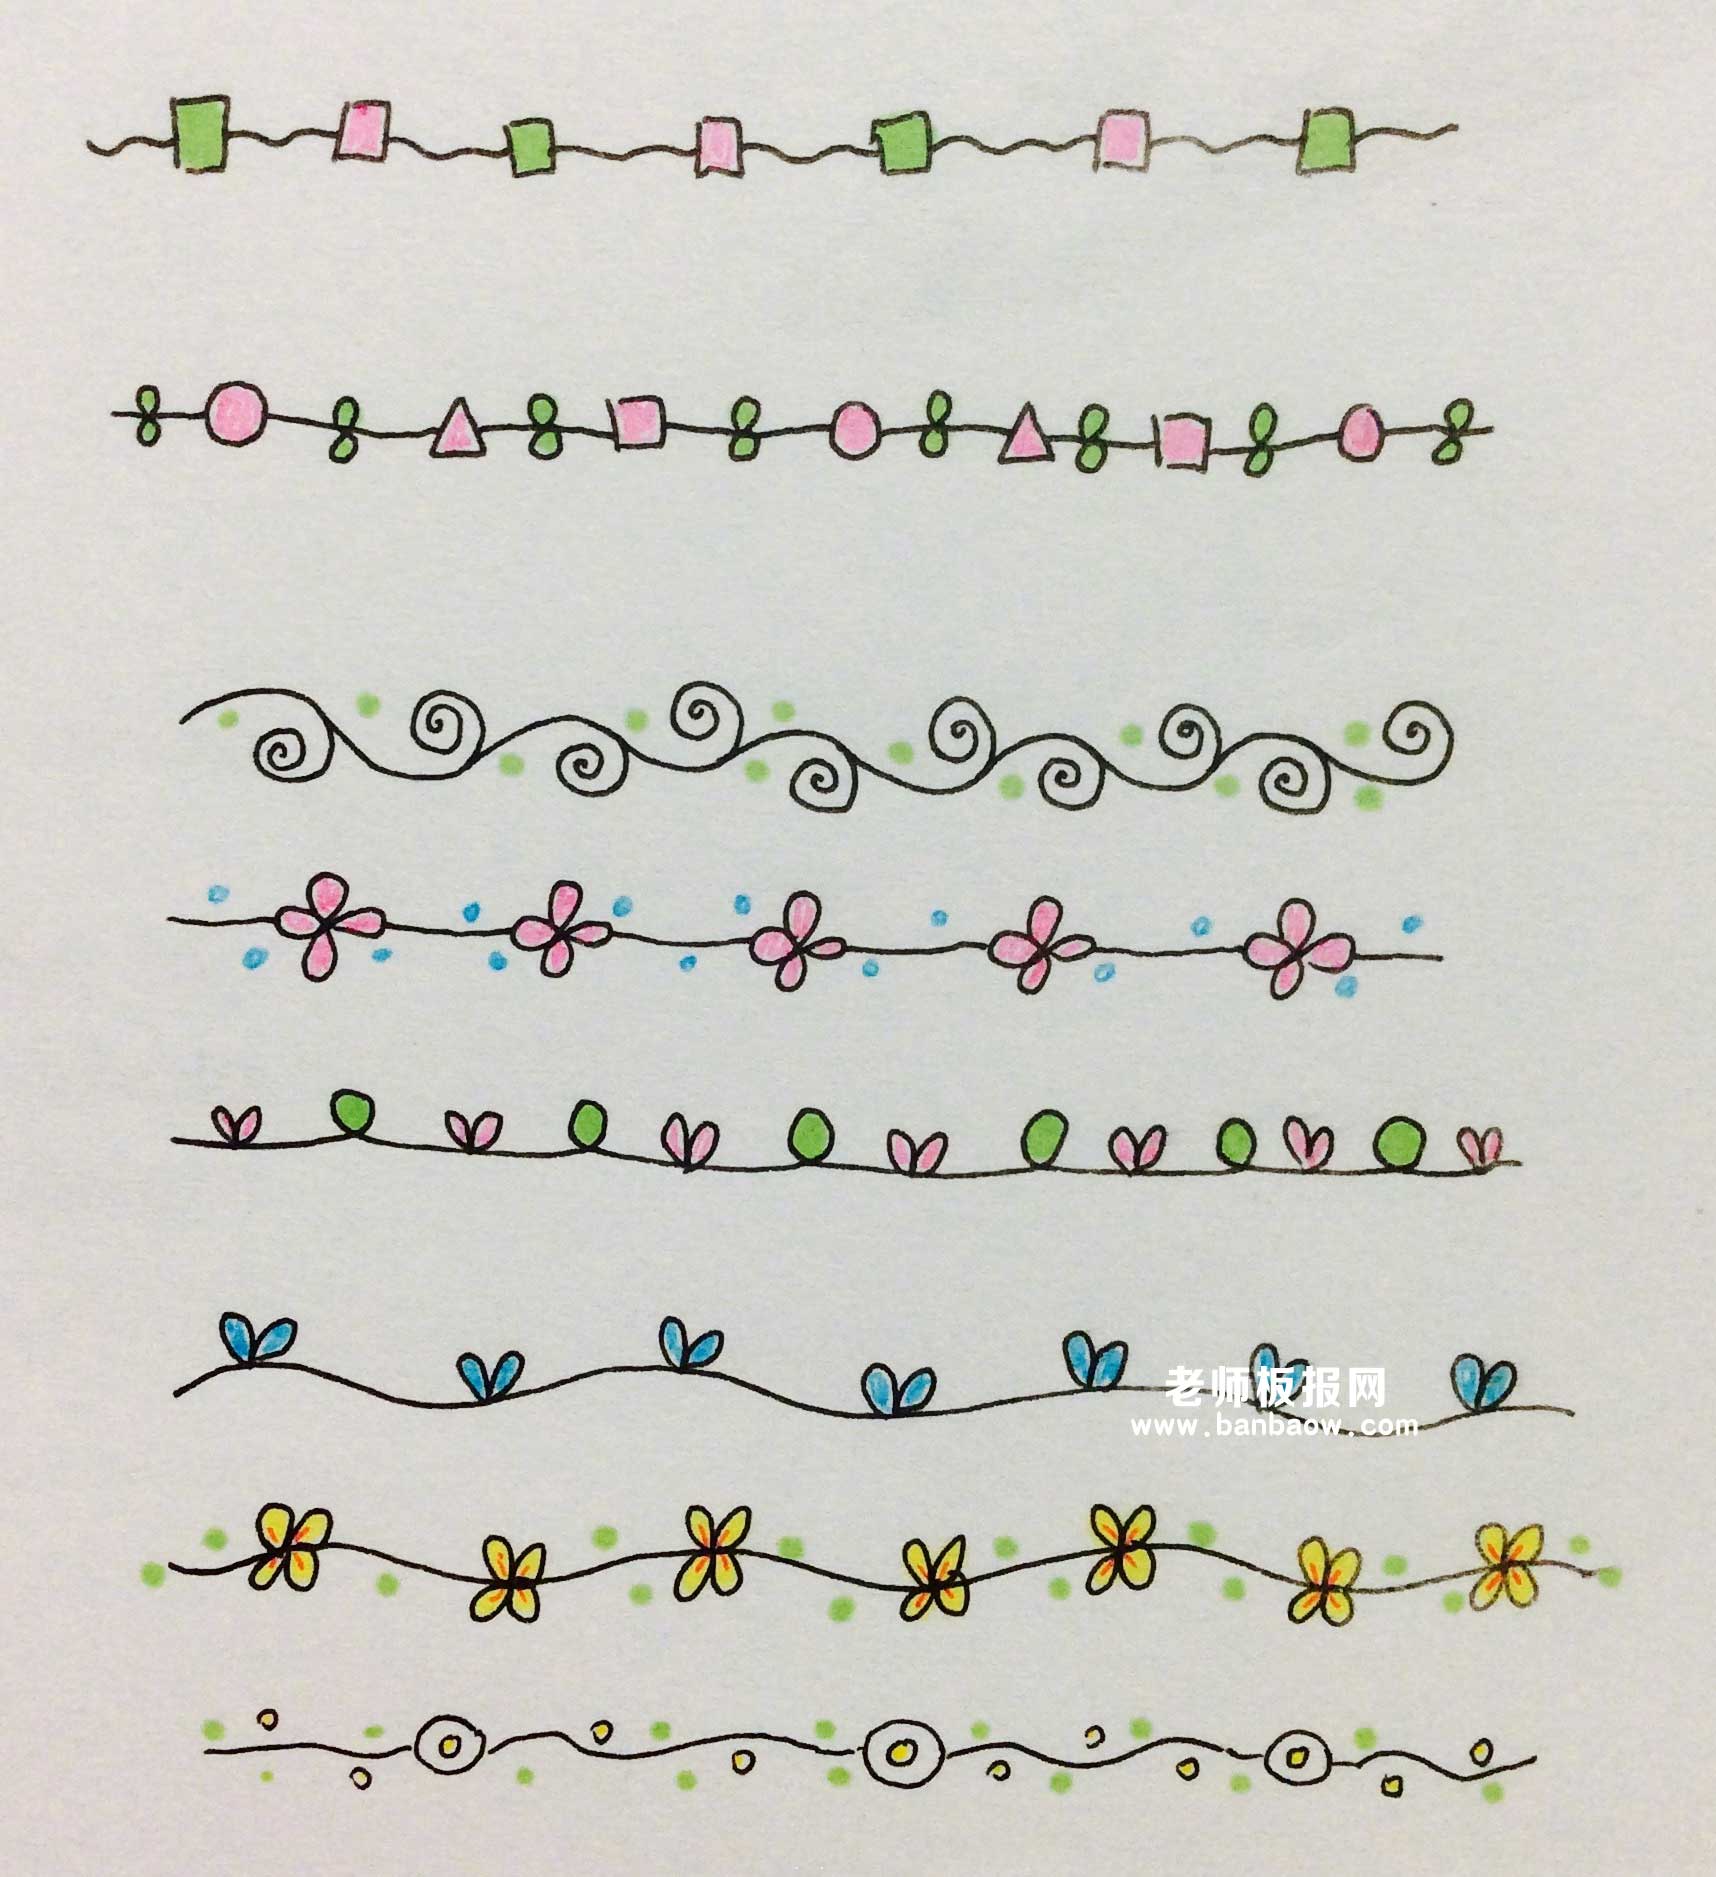 老师板报网
www.banbaow.com